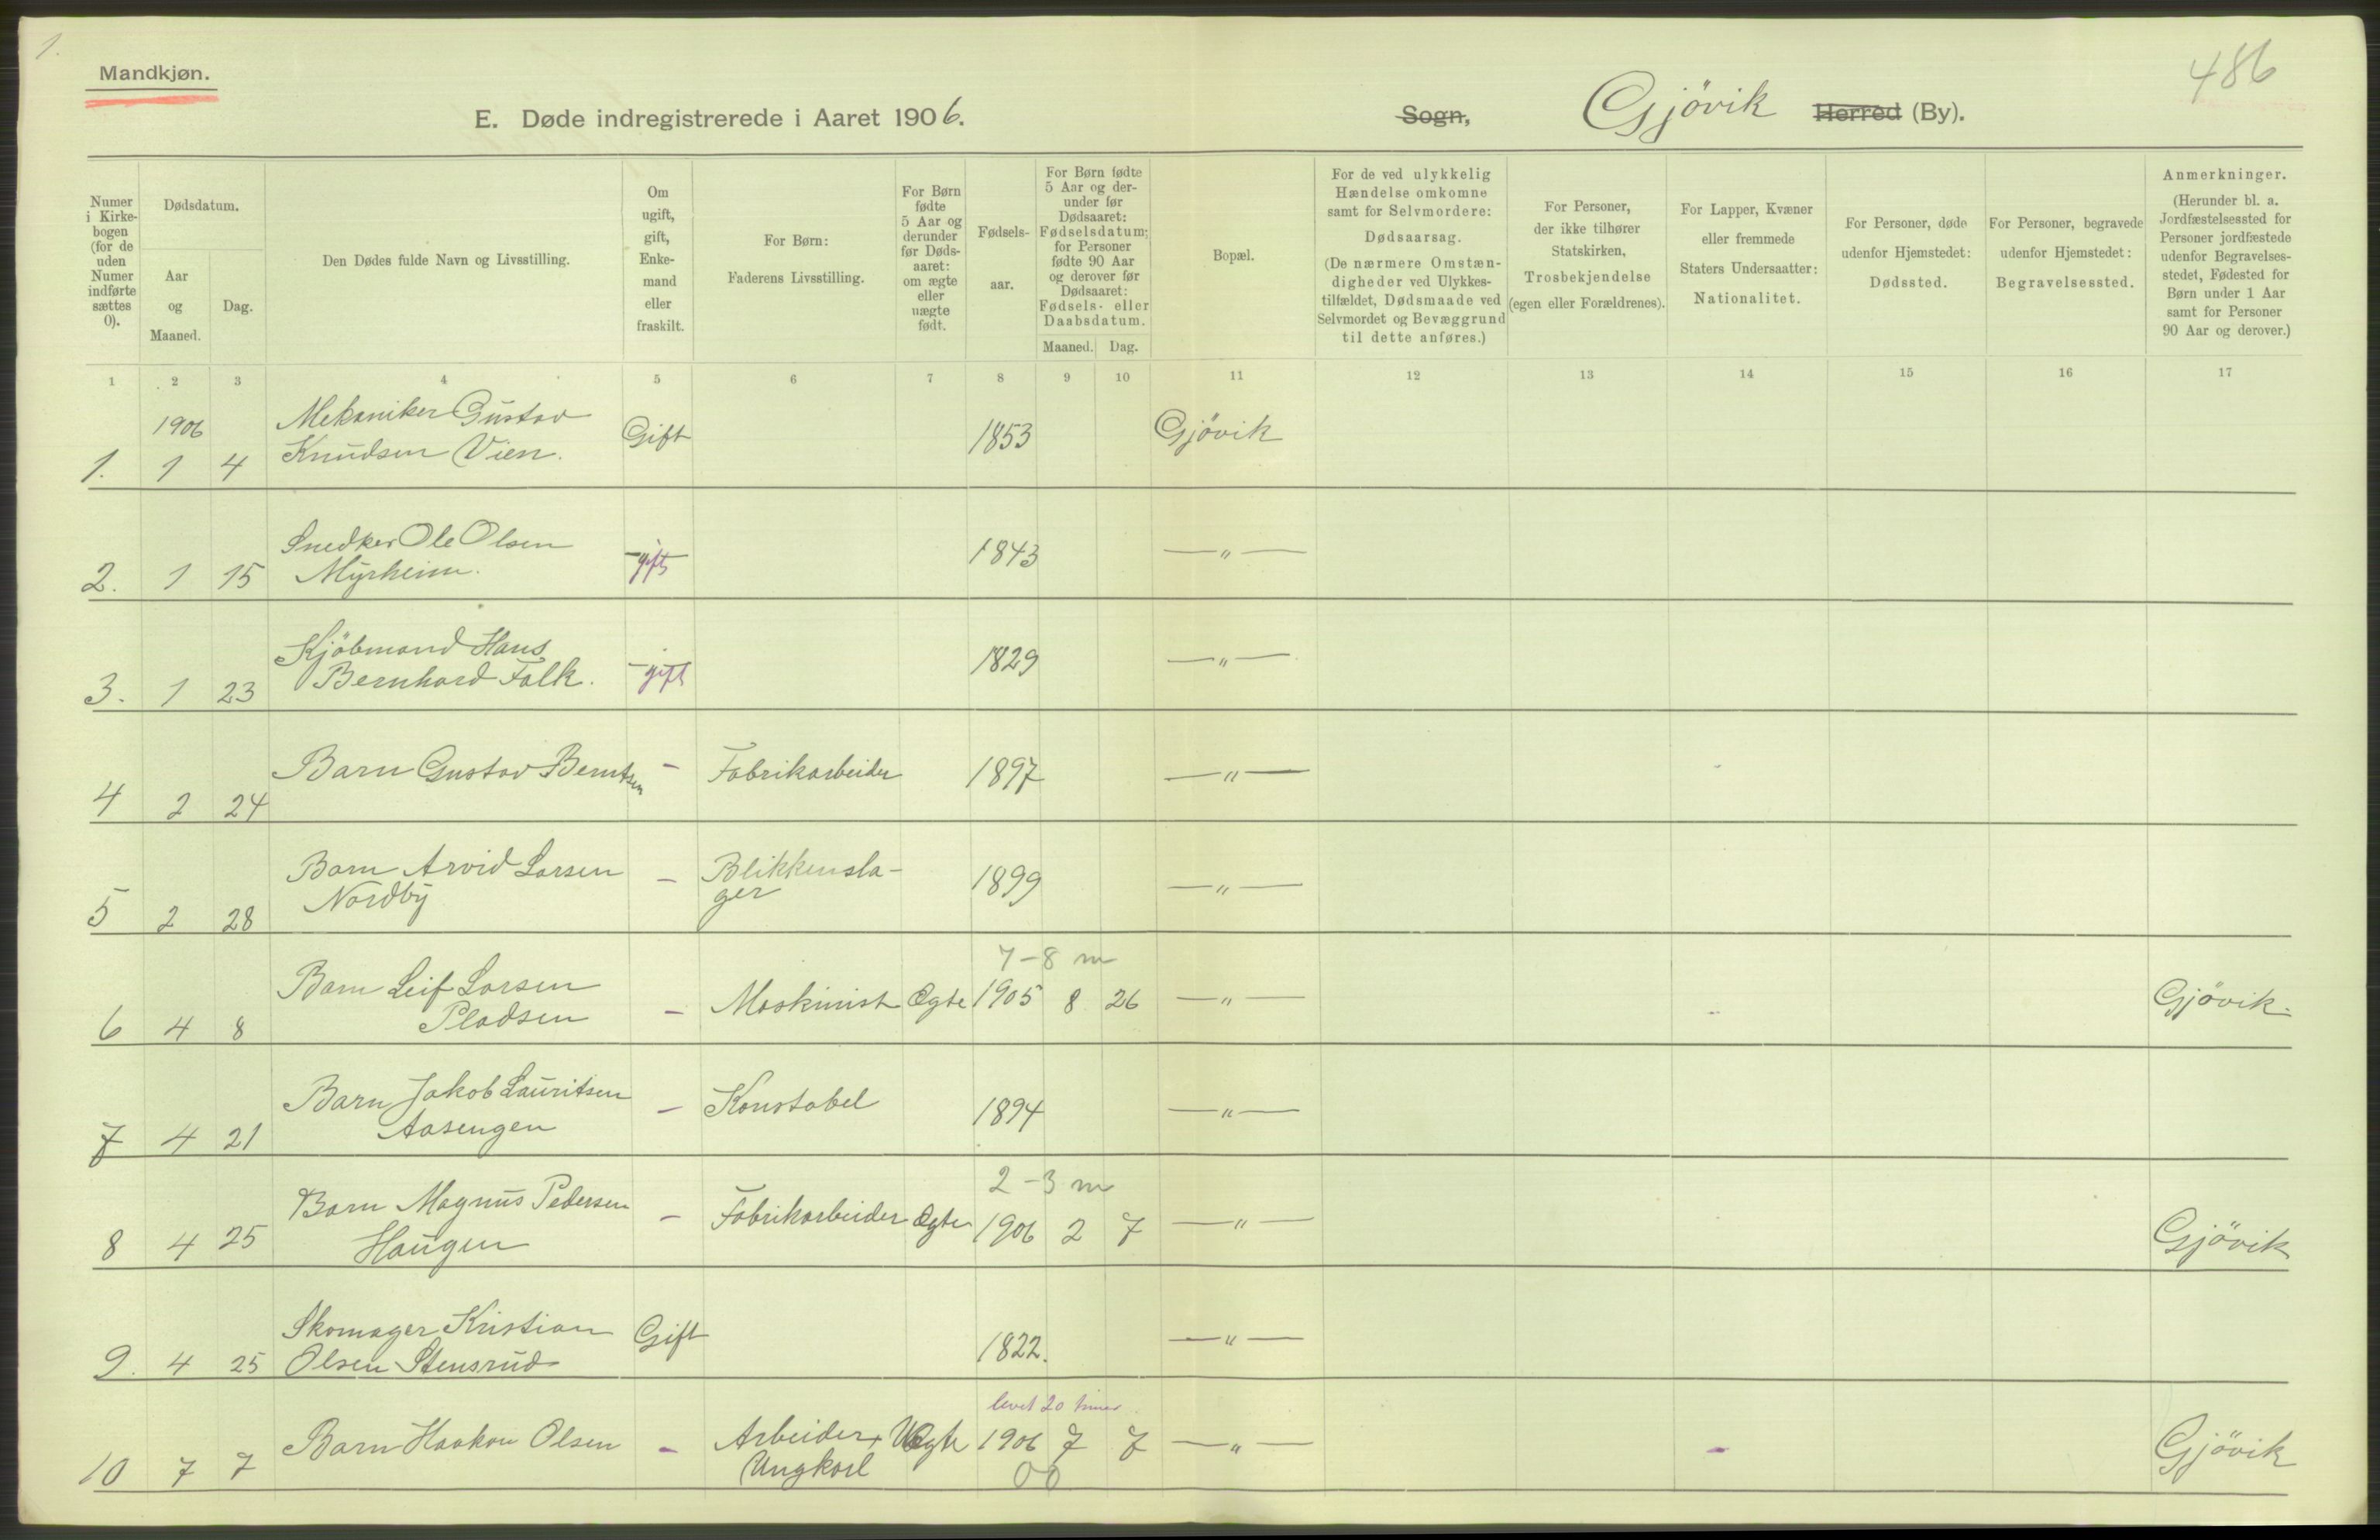 1.
Mandkjøn.
486
E. Døde indregistrerede i Aaret 1906.
Sogn, Gjövik Herred (By).
Numer i Kirkebogen (for de uden Numer indførte sættes 0).
Dødsdatum.
Aar og Maaned.
Dag.
Den Dødes fulde Navn og Livsstilling.
Om ugift, gift, Enkemand eller fraskilt.
For Børn:
Faderens Livsstilling.
For Børn fødte 5 Aar og derunder før Dødsaaret: om ægte eller uægte født.
Fødselsaar.
For Børn fødte 5 Aar og derunder før Dødsaaret: Fødselsdatum; for Personer fødte 90 Aar og derover før Dødsaaret: Fødsels- eller Daabsdatum.
Maaned. Dag.
Bopæl.
For de ved ulykkelig Hændelse omkomne samt for Selvmordere: Dødsaarsag. (De nærmere Omstændigheder ved Ulykkestilfældet, Dødsmaade ved Selvmordet og Bevæggrund til dette anføres.)
For Personer, der ikke tilhører Statskirken, Trosbekjendelse (egen eller Forældrenes).
For Lapper, Kvæner eller fremmede Staters Undersaatter: Nationalitet.
For Personer, døde udenfor Hjemstedet: Dødssted.
For Personer, begravede udenfor Hjemstedet: Begravelsessted.
Anmerkninger. (Herunder bl. a. Jordfæstelsessted for Personer jordfæstede udenfor Begravelsesstedet, Fødested for Børn under 1 Aar samt for Personer 90 Aar og derover.)
1 2 3 4 5 6 7 8 9 10 11 12 13 14 15 16 17
1906 Mekaniker Gustav Gift 1853 Gjövik
1. 1 4 Knudsen Vien.
Snedker Ole Olsen - gift 1843 — " —
2. 1 15 Myrheim.
Kjöbmand Hans - gift 1829 — " —
3. 1 23 Bernhard Falk.
4 2 24 Barn Gustav Berntsen - Fabrikarbeider 1897 — " —
Barn Arvid Larsen - Blikkensla- 1899 — " —
5 2 28 Nordby ger
7-8 m
Barn Leif Larsen - Maskinist Ægte 1905 8 26 — " — Gjövik.
6 4 8 Pladsen
Barn Jakob Lauritsen - Konstabel 1894 — " —
7 4 21 Aasengen
2-3 m
Barn Magnus Pedersen - Fabrikarbeider Ægte 1906 2 7 — " — Gjövik
8 4 25 Haugen
Skomager Kristian Gift 1822. — " —
9. 4 25 Olsen Stensrud
levet 20 timer.
10 7 7 Barn Haakon Olsen - Arbeider, Uægte 1906 7 7 — " — Gjövik
Ungkarl 00